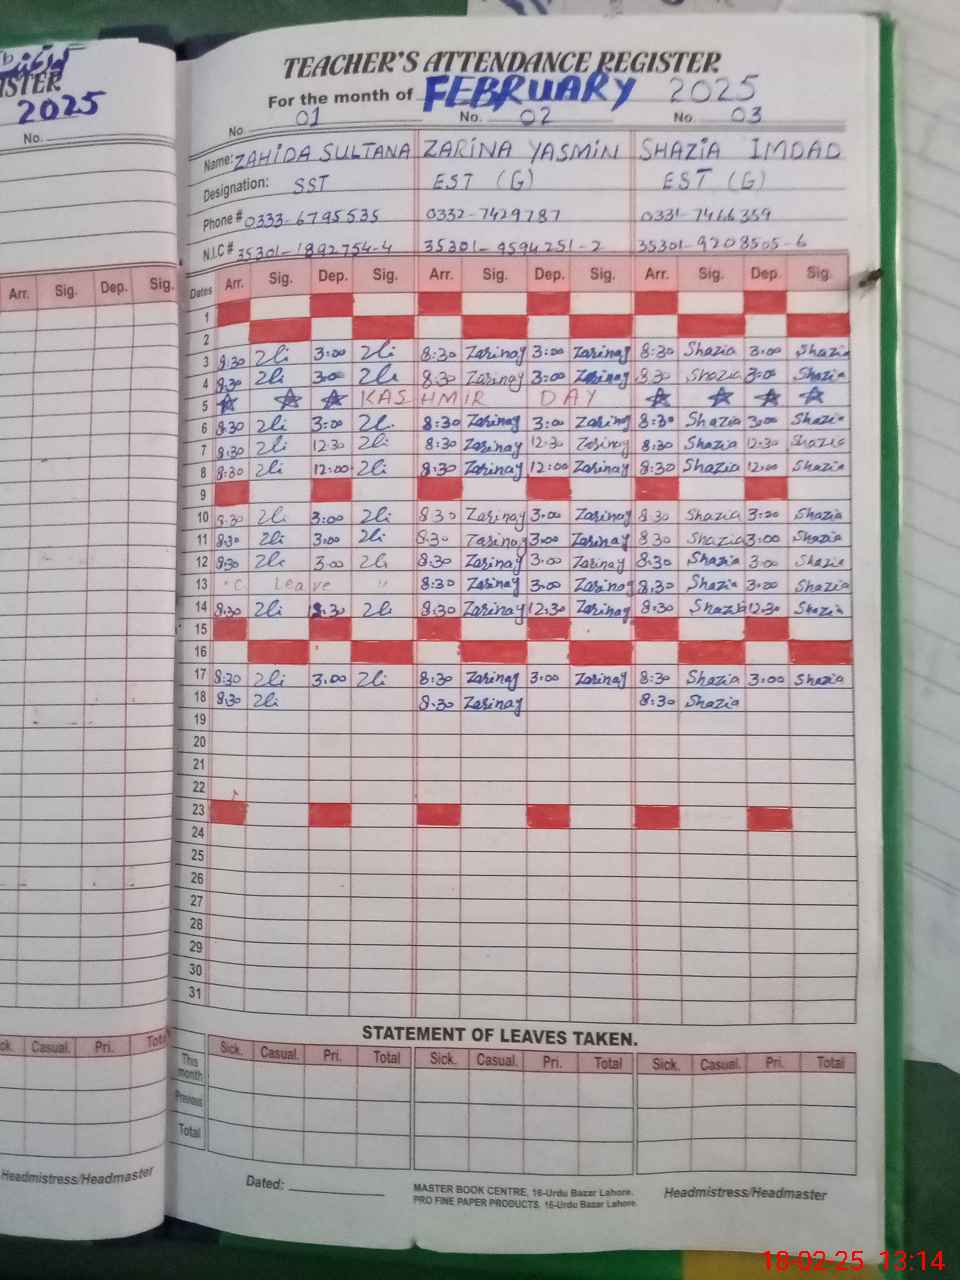 ISTER
2025
No.
Arr. Sig. Dep. Sig.
TEACHER'S ATTENDANCE REGISTER
For the month of FEBRUARY 2025
No. 01 No. 02 No. 03
Name: ZAHIDA SULTANA ZARINA YASMIN SHAZIA IMDAD
Designation: SST EST (G) EST (G)
Phone # 0333-6795535 0332-7429787 0331-7466359
N.I.C # 35301-1892754-4 35301-9594251-2 35301-9208505-6
Dates Arr. Sig. Dep. Sig. Arr. Sig. Dep. Sig. Arr. Sig. Dep. Sig.
1
2
3 8:30 3:00 8:30 Zarinay 3:00 Zarinay 8:30 Shazia 3:00 Shazia
4 8:30 3:00 8:30 Zarinay 3:00 Zarinay 8:30 Shazia 3:00 Shazia
5 KASHMIR DAY
6 8:30 3:00 8:30 Zarinay 3:00 Zarinay 8:30 Shazia 3:00 Shazia
7 8:30 12:30 8:30 Zarinay 12:30 Zarinay 8:30 Shazia 12:30 Shazia
8 8:30 12:00 8:30 Zarinay 12:00 Zarinay 8:30 Shazia 12:00 Shazia
9
10 8:30 3:00 8:30 Zarinay 3:00 Zarinay 8:30 Shazia 3:00 Shazia
11 8:30 3:00 8:30 Zarinay 3:00 Zarinay 8:30 Shazia 3:00 Shazia
12 8:30 3:00 8:30 Zarinay 3:00 Zarinay 8:30 Shazia 3:00 Shazia
13 "C Leave " 8:30 Zarinay 3:00 Zarinay 8:30 Shazia 3:00 Shazia
14 8:30 12:30 8:30 Zarinay 12:30 Zarinay 8:30 Shazia 12:30 Shazia
15
16
17 8:30 3:00 8:30 Zarinay 3:00 Zarinay 8:30 Shazia 3:00 Shazia
18 8:30 8:30 Zarinay 8:30 Shazia
19
20
21
22
23
24
25
26
27
28
29
30
31
STATEMENT OF LEAVES TAKEN.
ck. Casual. Pri. Total
Sick. Casual. Pri. Total Sick. Casual. Pri. Total Sick. Casual. Pri. Total
This month
Previous
Total
Headmistress/Headmaster
Dated: MASTER BOOK CENTRE, 16-Urdu Bazar Lahore. Headmistress/Headmaster
PRO FINE PAPER PRODUCTS, 16-Urdu Bazar Lahore.
18-02-25 13:14